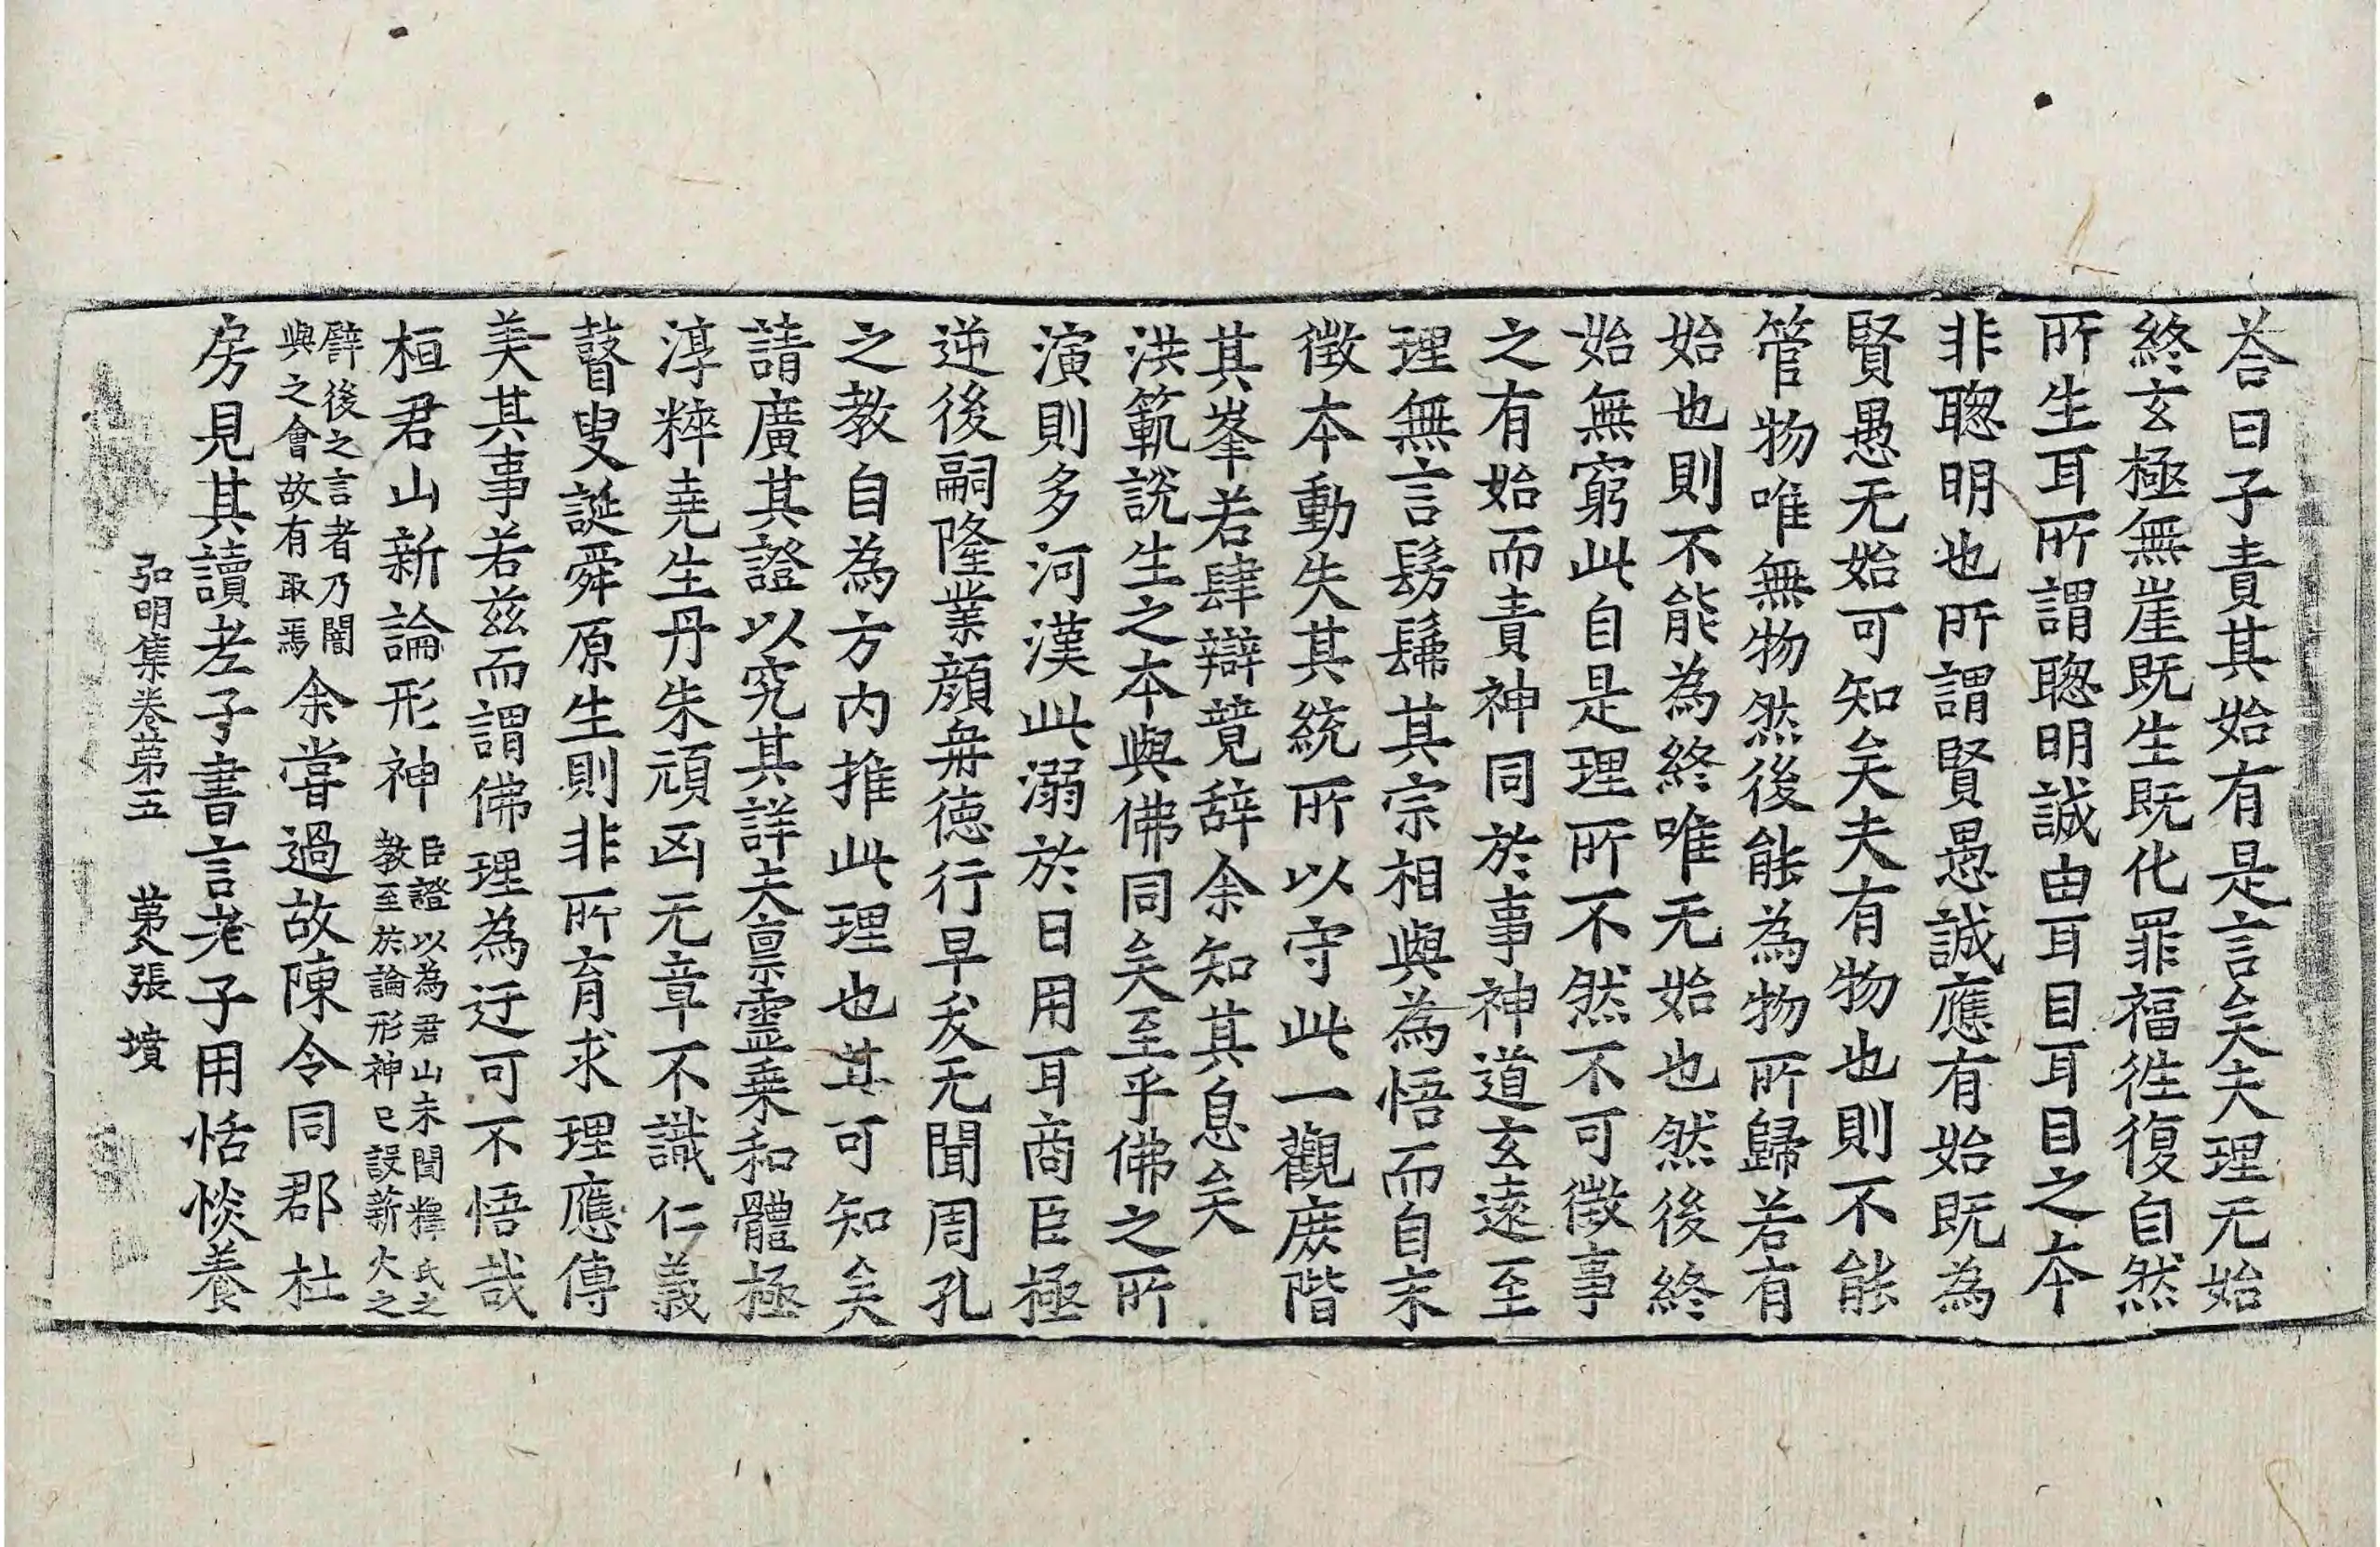 荅曰子責其始有是言矣夫理无始
終玄極無崖既生既化罪福徃復自然
所生耳所謂聦明誠由耳目耳目之本
非聦明也所謂賢愚誠應有始既為
賢愚无始可知矣夫有物也則不能
管物唯無物然後能為物所歸若有
始也則不能為終唯无始也然後終
始無窮此自是理所不然不可徵事
之有始而責神同於事神道玄遠至
理無言髣髴其宗相與為悟而自末
徵本動失其統所以守此一觀庶階
其峯若肆辯競辞余知其息矣
洪範說生之本與佛同矣至乎佛之所
演則多河漢此溺於日用耳商臣極
逆後嗣隆業顔冉徳行早夭无聞周孔
之教自為方内推此理也其可知矣
請廣其證以究其詳夫禀靈乗和體極
淳粹尭生丹朱頑凶无章不識仁義
瞽叟誕舜原生則非所育求理應傳
美其事若兹而謂佛理為迂可不悟哉
桓君山新論形神 臣證以為君山未聞釋氏之
教至於論形神已設薪火之
譬後之言者乃闇
與之會故有取焉 余甞過故陳令同郡杜
房見其讀老子書言老子用恬惔養
弘明集卷第五 第八張 墳